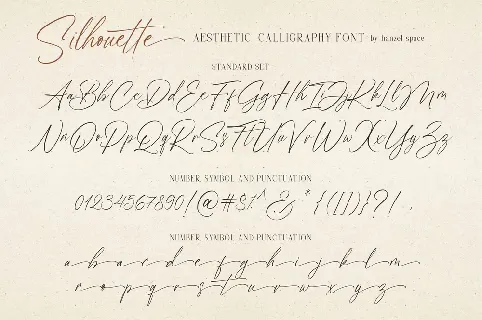 Silhouette AESTHETIC CALLIGRAPHY FONT by hanzel space
STANDARD SET
AaBbCcDdEeFfGgHhIiJjKkLlMm
NnOoPpQqRrSsTtUuVvWwXxYyZz
NUMBER, SYMBOL AND PUNCTUATION
01234567890!@#$%^&*{([])}?/.,
NUMBER, SYMBOL AND PUNCTUATION
a b c d e f g h i j k l m
n o p q r s t u v w x y z